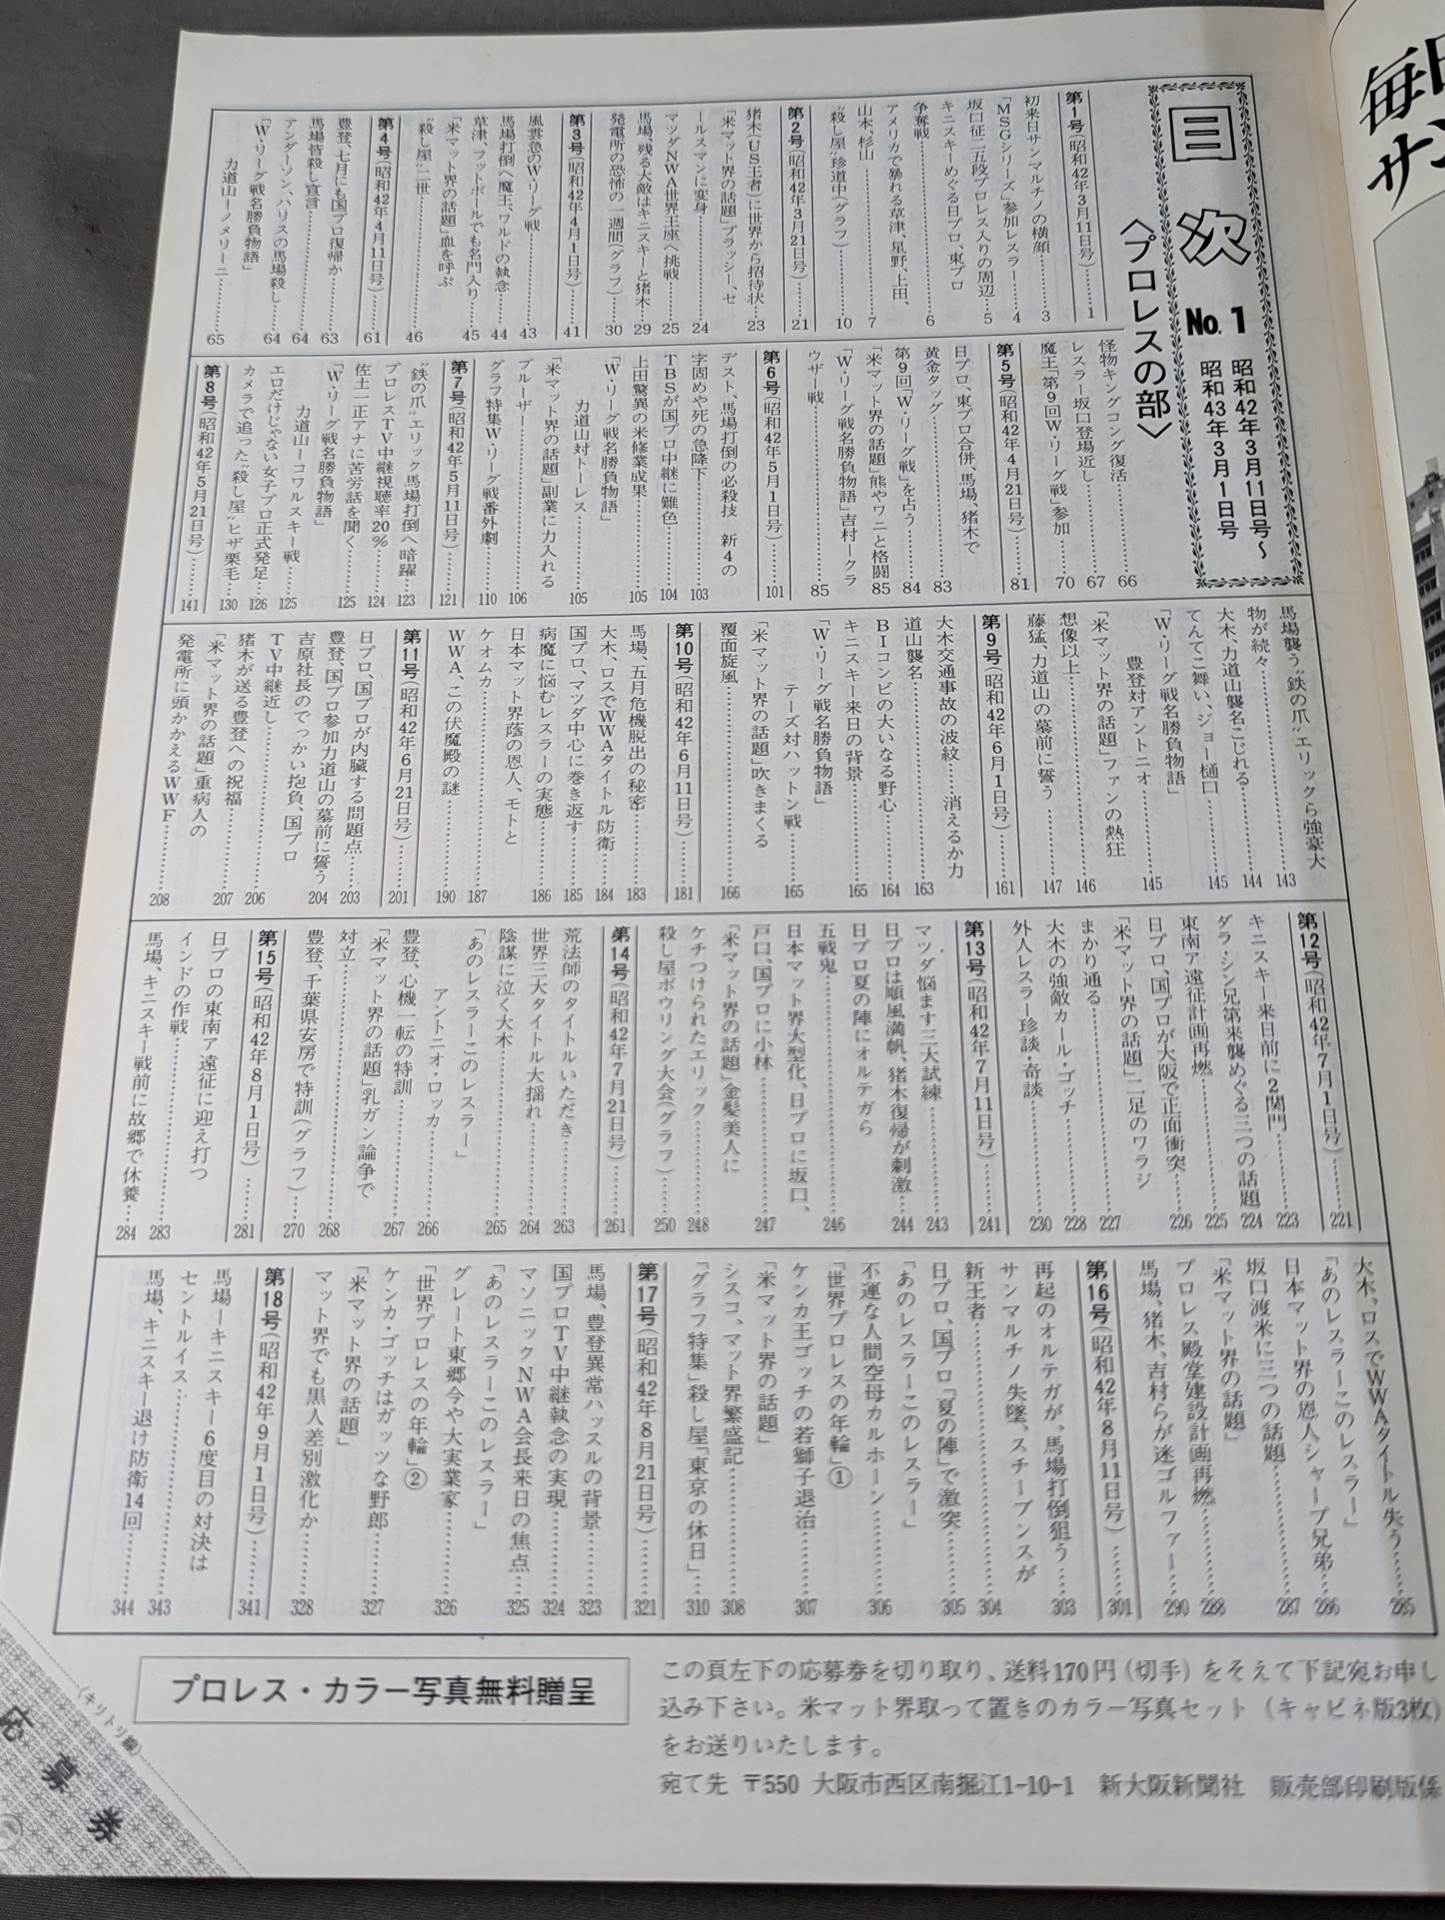 目次 No.1
昭和42年3月11日号～
昭和43年3月1日号
〈プロレスの部〉
第1号(昭和42年3月11日号)……1
初来日サンマルチノの横顔……3
「MSGシリーズ」参加レスラー……4
坂口征二五段プロレス入りの周辺……5
キニスキーめぐる日プロ、東プロ
争奪戦……6
アメリカで暴れる草津、星野、上田、
山本、杉山……7
“殺し屋”珍道中(グラフ)……10
第2号(昭和42年3月21日号)……21
猪木(US王者)に世界から招待状……23
「米マット界の話題」ブラッシー、セ
ールスマンに変身……24
マツダNWA世界王座へ挑戦……25
馬場、残る大敵はキニスキーと猪木……29
発電所の恐怖の一週間(グラフ)……30
第3号(昭和42年4月1日号)……41
風雲急のW・リーグ戦……43
馬場打倒へ魔王、ワルドの執念……44
草津、フットボールでも名門入り……45
「米マット界の話題」血を呼ぶ
“殺し屋”二世……46
第4号(昭和42年4月11日号)……61
豊登、七月にも国プロ復帰か……63
馬場皆殺し宣言……64
アンダーソン、ハリスの馬場殺し……64
「W・リーグ戦名勝負物語」
力道山ーノメリーニ……65
怪物キングコング復活……66
レスラー坂口登場近し……67
魔王「第9回W・リーグ戦」参加……70
第5号(昭和42年4月21日号)……81
日プロ、東プロ合併、馬場、猪木で
黄金タッグ……83
第9回「W・リーグ戦」を占う……84
「米マット界の話題」熊やワニと格闘……85
「W・リーグ戦名勝負物語」吉村ークラ
ウザー戦……85
第6号(昭和42年5月1日号)……101
デスト、馬場打倒の必殺技 新4の
字固めや死の急降下……103
TBSが国プロ中継に難色……104
上田驚異の米修業成果……105
「W・リーグ戦名勝負物語」
力道山対トーレス……105
「米マット界の話題」副業に力入れる
ブルーザー……106
グラフ特集W・リーグ戦番外劇……110
第7号(昭和42年5月11日号)……121
“鉄の爪”エリック馬場打倒へ暗躍……123
プロレスTV中継視聴率20%……124
佐土一正アナに苦労話を聞く……125
「W・リーグ戦名勝負物語」
力道山ーコワルスキー戦……125
エロだけじゃない女子プロ正式発足……126
カメラで追った“殺し屋”ヒザ栗毛……130
第8号(昭和42年5月21日号)……141
馬場襲う“鉄の爪”エリックら強豪大
物が続々……143
大木、力道山襲名こじれる……144
てんてこ舞い、ジョー樋口……145
「W・リーグ戦名勝負物語」
豊登対アントニオ……145
「米マット界の話題」ファンの熱狂
想像以上……146
藤猛、力道山の墓前に誓う……147
第9号(昭和42年6月1日号)……161
大木交通事故の波紋……消えるか力
道山襲名……163
BIコンビの大いなる野心……164
キニスキー来日の背景……165
「W・リーグ戦名勝負物語」
テーズ対ハットン戦……165
「米マット界の話題」吹きまくる
覆面旋風……166
第10号(昭和42年6月11日号)……181
馬場、五月危機脱出の秘密……183
大木、ロスでWWAタイトル防衛……184
国プロ、マツダ中心に巻き返す……185
病魔に悩むレスラーの実態……186
日本マット界蔭の恩人、モトと
ケオムカ……187
WWA、この伏魔殿の謎……190
第11号(昭和42年6月21日号)……201
日プロ、国プロが内臓する問題点……203
豊登、国プロ参加力道山の墓前に誓う……204
吉原社長のでっかい抱負、国プロ
TV中継近し……206
猪木が送る豊登への祝福……207
「米マット界の話題」重病人の
発電所に頭かかえるWWF……208
第12号(昭和42年7月1日号)……221
キニスキー来日前に2関門……223
ダラ・シン兄弟来襲めぐる三つの話題……224
東南ア遠征計画再燃……225
日プロ、国プロが大阪で正面衝突……226
「米マット界の話題」二足のワラジ
まかり通る……227
大木の強敵カール・ゴッチ……228
外人レスラー珍談・奇談……230
第13号(昭和42年7月11日号)……241
マツダ悩ます三大試練……243
日プロは順風満帆、猪木復帰が刺激……244
日プロ夏の陣にオルテガら
五戦鬼……246
日本マット界大型化、日プロに坂口、
戸口、国プロに小林……247
「米マット界の話題」金髪美人に
ケチつけられたエリック……248
殺し屋ボウリング大会(グラフ)……250
第14号(昭和42年7月21日号)……261
荒法師のタイトルいただき……263
世界三大タイトル大揺れ……264
陰謀に泣く大木……265
「あのレスラーこのレスラー」
アントニオ・ロッカ……266
豊登、心機一転の特訓……267
「米マット界の話題」乳ガン論争で
対立……268
豊登、千葉県安房で特訓(グラフ)……270
第15号(昭和42年8月1日号)……281
日プロの東南ア遠征に迎え打つ
インドの作戦……283
馬場、キニスキー戦前に故郷で休養……284
大木、ロスでWWAタイトル失う……285
「あのレスラーこのレスラー」
日本マット界の恩人シャープ兄弟……286
坂口渡米に三つの話題……287
「米マット界の話題」
プロレス殿堂建設計画再燃……288
馬場、猪木、吉村らが迷ゴルファー……290
第16号(昭和42年8月11日号)……301
再起のオルテガが、馬場打倒狙う……303
サンマルチノ失墜、スチーブンスが
新王者……304
日プロ、国プロ「夏の陣」で激突……305
「あのレスラーこのレスラー」
不運な人間空母カルホーン……306
「世界プロレスの年輪」①
ケンカ王ゴッチの若獅子退治……307
「米マット界の話題」
シスコ、マット界繁盛記……308
「グラフ特集」殺し屋「東京の休日」……310
第17号(昭和42年8月21日号)……321
馬場、豊登異常ハッスルの背景……323
国プロTV中継執念の実現……324
マソニックNWA会長来日の焦点……325
「あのレスラーこのレスラー」
グレート東郷今や大実業家……326
「世界プロレスの年輪」②
ケンカ・ゴッチはガッツな野郎……327
「米マット界の話題」
マット界でも黒人差別激化か……328
第18号(昭和42年9月1日号)……341
馬場ーキニスキー6度目の対決は
セントルイス……343
馬場、キニスキー退け防衛14回……344
プロレス・カラー写真無料贈呈
この頁左下の応募券を切り取り、送料170円(切手)をそえて下記宛お申し
込み下さい。米マット界取って置きのカラー写真セット(キャビネ版3枚)
をお送りいたします。
宛て先 〒550 大阪市西区南掘江1-10-1 新大阪新聞社 販売部印刷版係
(キリトリ線)
応募券
毎日
サン